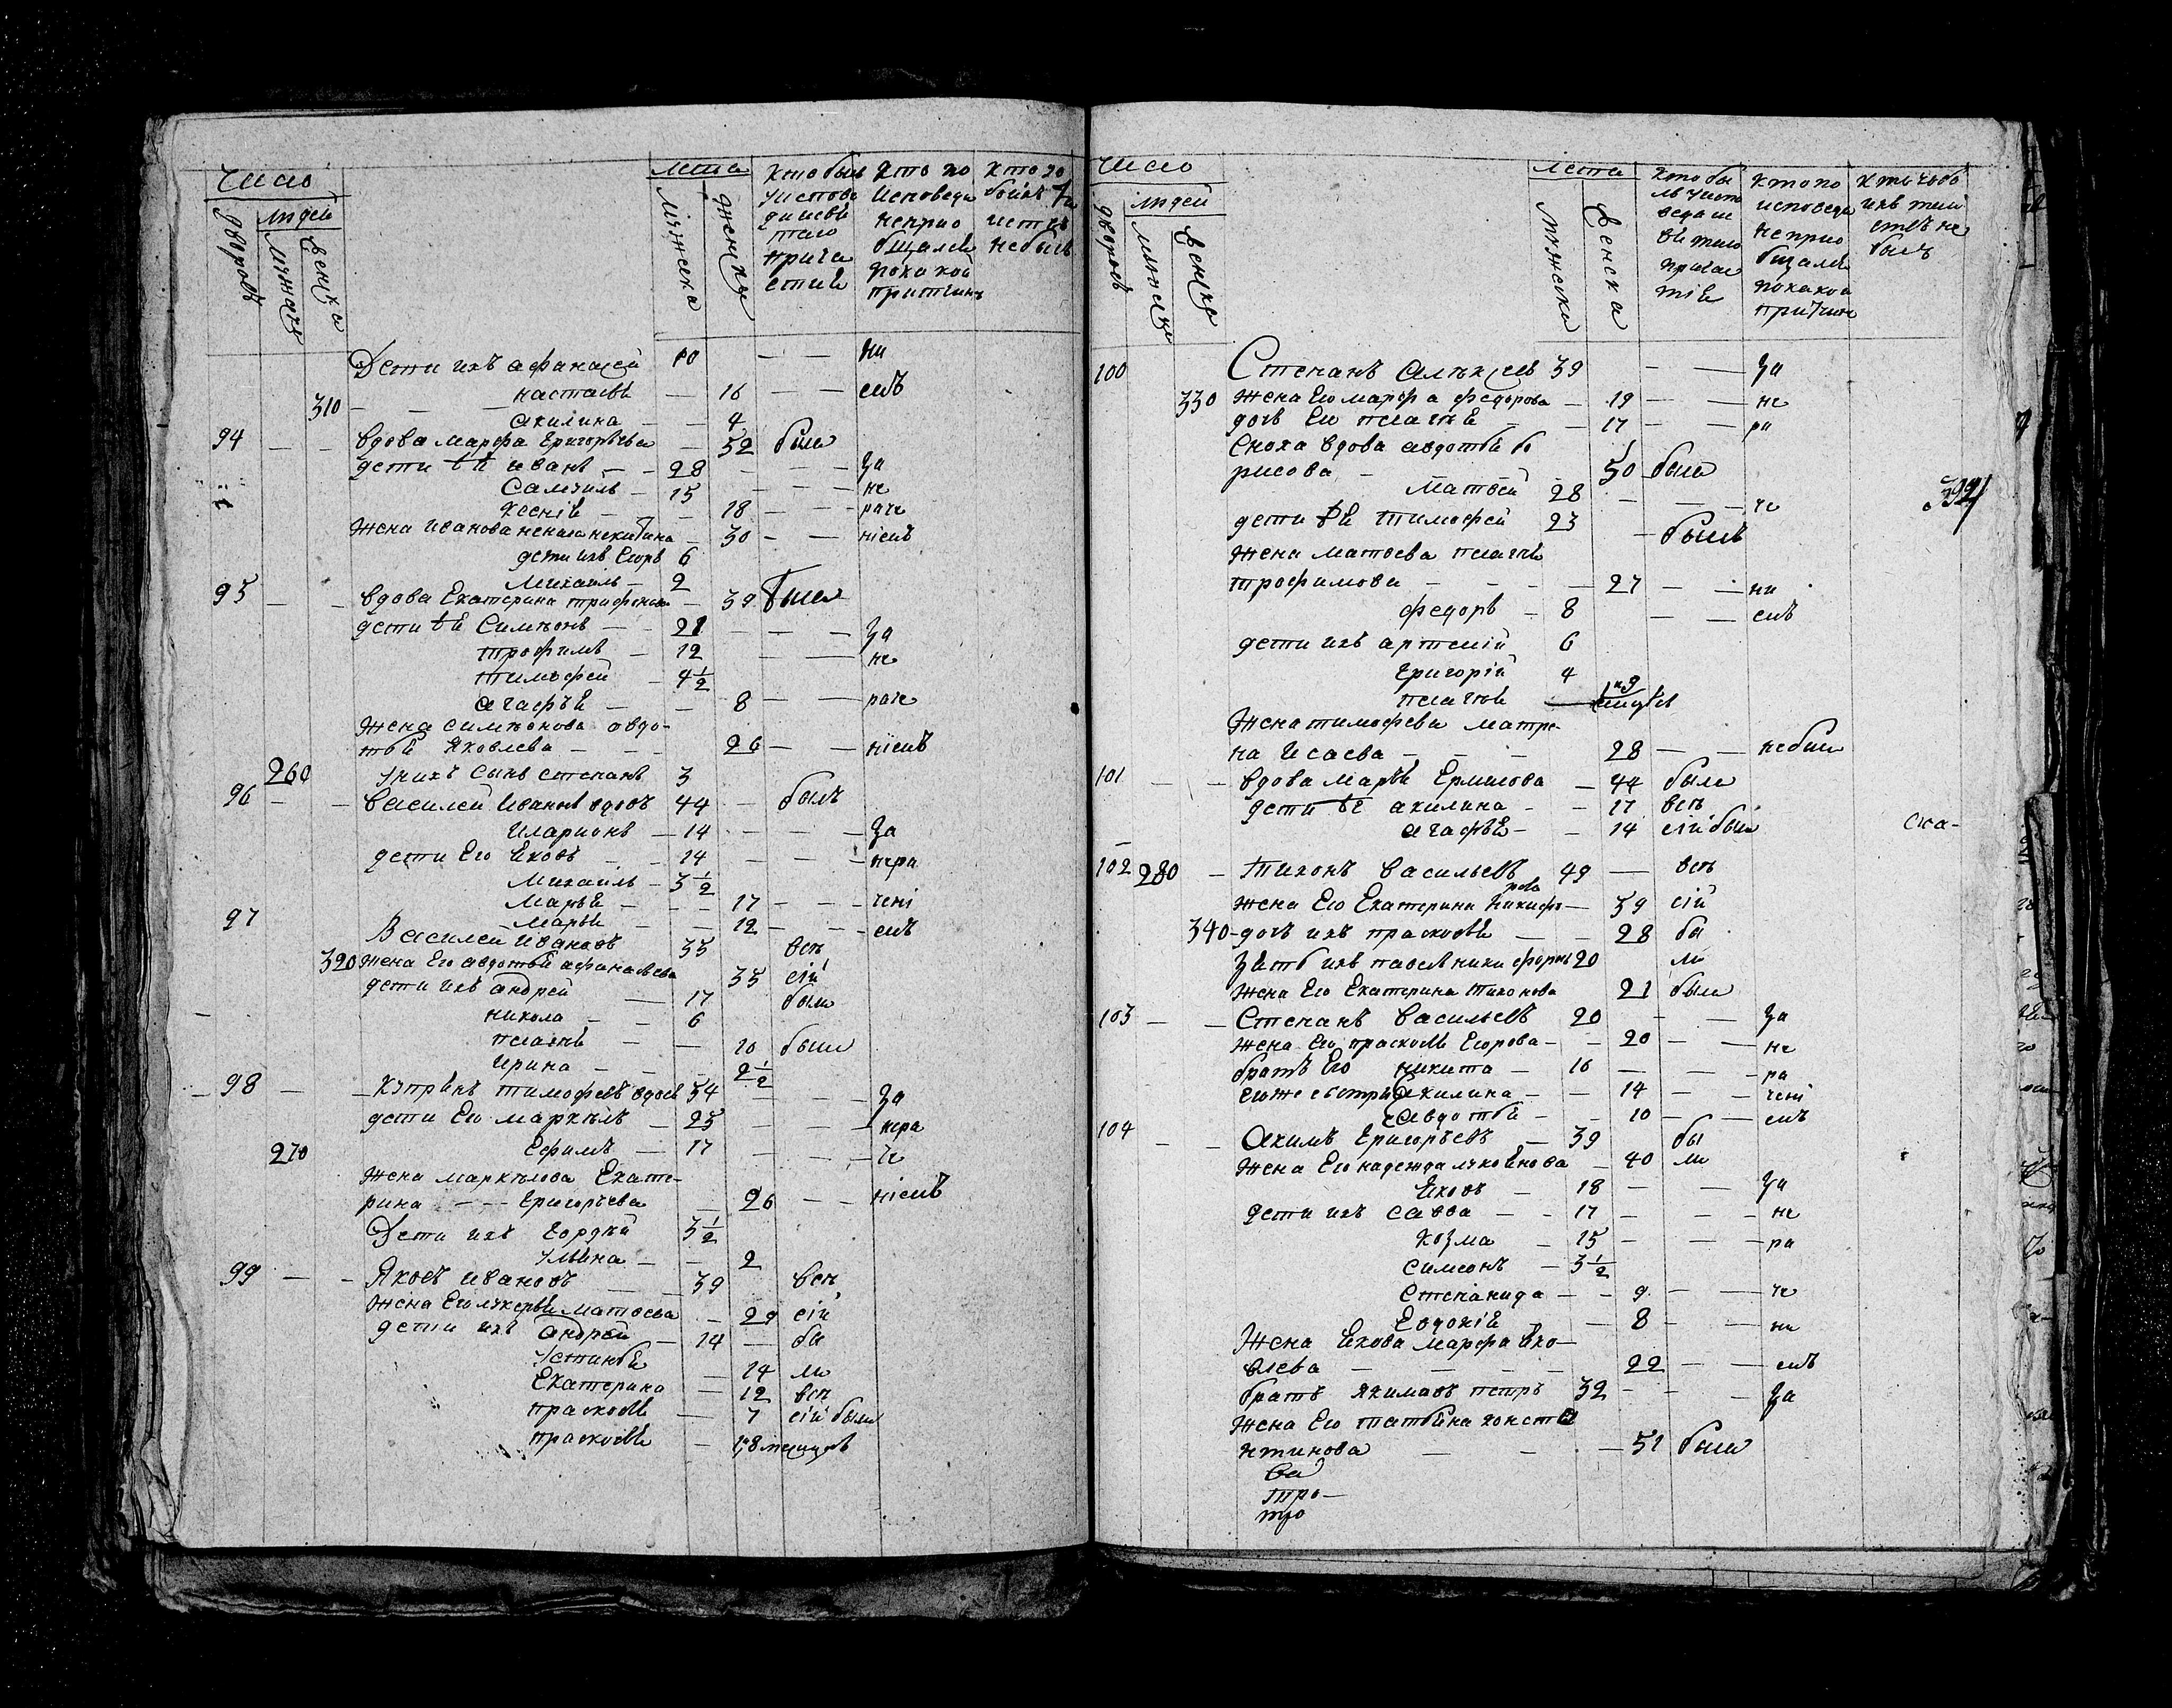 Число
людей
дворовъ
мужска
женска
лета
мужска
женска
кто былъ
у испове
ди и свя
таго
прича
стия
кто по
исповеди
неприо
бщался
по какой
притчине
не былъ
Дети ихъ афанасей 10 — — ни
настасья — 16 — — емъ
310 — — — акилина — — 4
94 — — вдова марфа григорьева — 52 была
дети ея иванъ — — 28 — — — за
Самуилъ — 15 — — — не
ксения — — — 18 — — — раче
жена иванова ненила никитина — 30 — — ниемъ
дети ихъ егоръ 6
михаилъ — 2
95 — — вдова Екатерина трифонова — 39 была
дети ея Симеонъ — — 21 — — — за
трофимъ — 12 — — не
тимофей — 4 1/2
агафья — — 8 — — раче
жена симеонова овдо-
тья Яковлева — — — 26 — — ниемъ
260 у нихъ сынъ степанъ 3
96 — — василей Ивановъ вдовъ 44 — былъ
иларионъ — 14 — — — за
дети Его Яковъ — — 14 — — — нера
Михаилъ — 3 1/2
марья — — — 17 — — — чені
марья — — 12 — — — емъ
97 Василей Ивановъ 35 всѣ
320 жена Его авдотья афанасьева 35 сіи
дети ихъ андрей — 17 были
никола — — 6
пелагея — — 10 были
ирина — — — 2 1/2
— 98 — — купріянъ тимофеевъ вдовъ 54 — — — за
дети Его маркелъ — 25 — — — нера
270 Ефимъ — 17 — — — че
жена маркелова Екате-
рина — — Григорьева — 26 — — ниемъ
Дети ихъ Гордей 3 1/2
ульяна — — 2
99 — — Яковъ ивановъ — — 39 всѣ
жена Его лукерья матвеева — 29 сіи
дети ихъ андрей — 14 — бы
устинья — 14 ли
Екатерина — 12 всѣ
прасковья — 7 сіи были
прасковья — 8 месяцовъ
Число
людей
дворовъ
женска
лета
мужска
женска
кто бы
лъ у испо
веди и с
вятаго
причас
тия
кто по
исповеди
неприо
бщался
по какой
причине
былъ
100 Степанъ алексеевъ 39 — — за
330 жена Его марфа федорова — 19 — — не
дочь Его пелагея — — 17 — — ра
сноха вдова авдотья бо
рисова — 50 была
матвей 28 — — — че
дети ея тимофей 23 — былъ
жена матвева пелагея
трофимова — — — — 27 — — ни
федоръ — 8 — — емъ
дети ихъ артемій 6
григорій 4
пелагея
жена тимофева матре-
на Исаева — — — 28 — — не была
101 — — вдова марья Ермилова — 44 была
дети ея акилина — — 17 всѣ
агафья — — 14 сіи были
ска-
102 280 — Тихонъ васильевъ 49 — всѣ
рова
жена Его Екатерина никифо — 39 сіи
340 — дочь ихъ прасковья — — 28 бы
зять ихъ павелъ никифоровъ 20 ли
жена Его Екатерина тихонова 21 была
103 — — Степанъ васильевъ 20 — — за
жена Его прасковья Егорова — — 20 — — не
братъ Его никита — 16 — — — ра
его же сестры акилина — — 14 — — чені
авдотья — — 10 — — емъ
104 — — Акимъ Григорьевъ — 39 бы
жена Его надежда лукоянова — 40 ли
Яковъ — 18 — — за
дети ихъ савва — — 17 — — — не
козма — 15 — — — ра
симеонъ — 3 1/2
степанида — — 9 — — че
Евдокія — — 8 — — ни
жена Якова марфа Яко-
влева — — — — 22 — — емъ
братъ Якимовъ петръ 32 — — за
жена Его татьяна конста
нтинова — — — 51 была
тро —